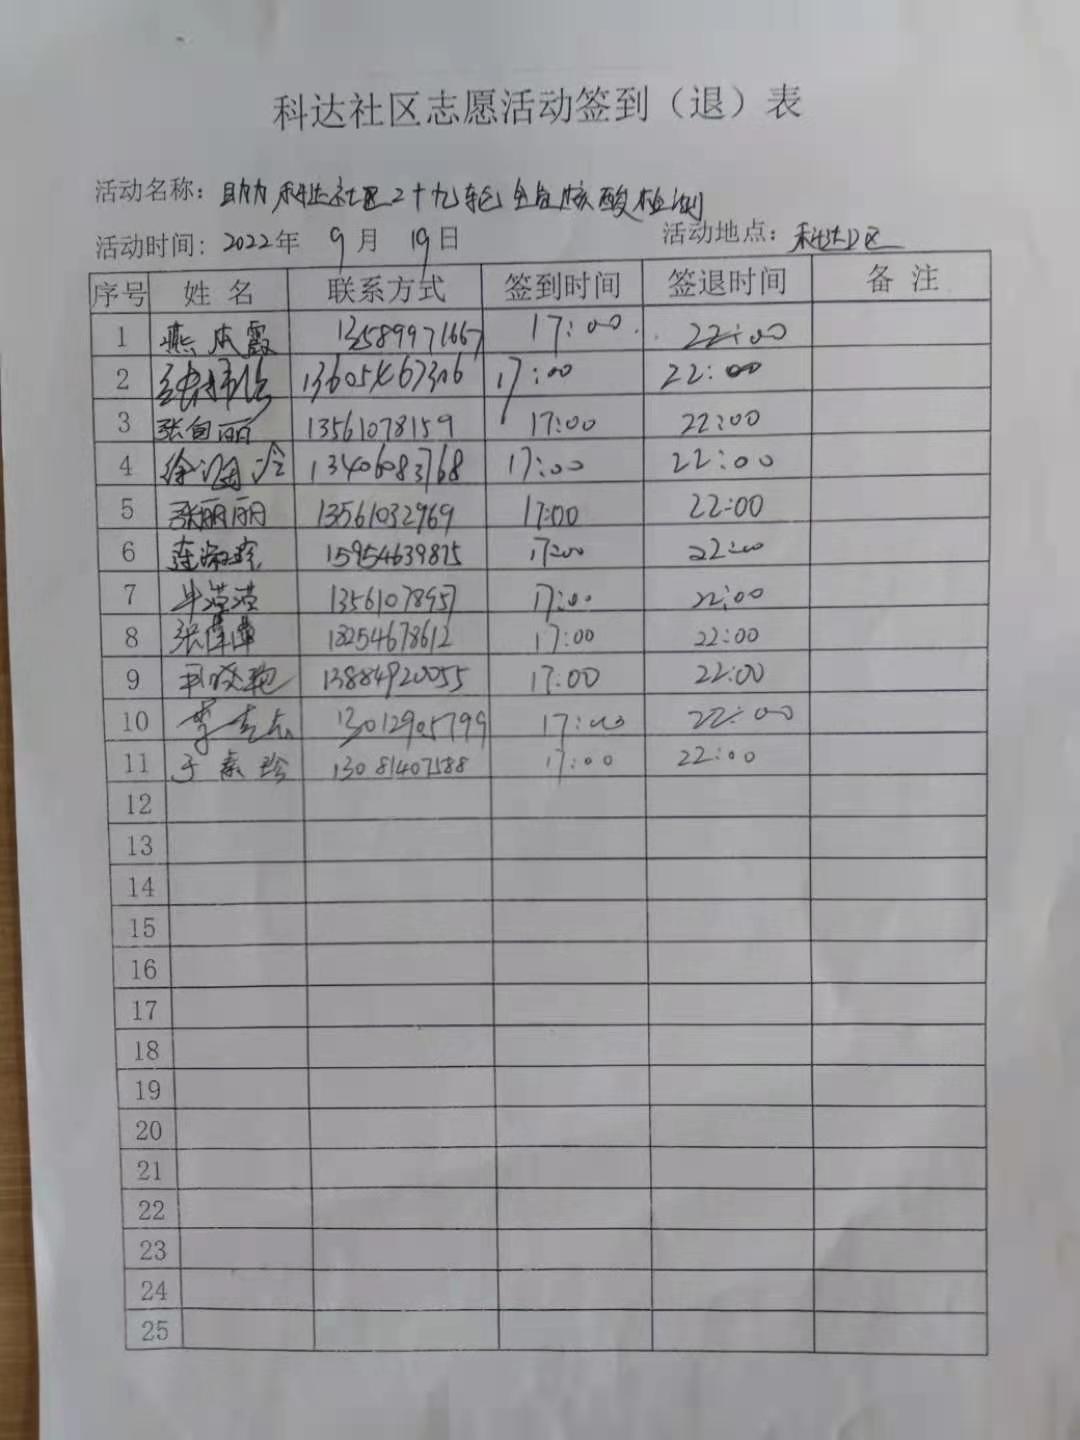 科达社区志愿活动签到（退）表
活动名称：助力科达社区二十九轮全员核酸检测
活动时间：2022年 9月 19日 活动地点：科达D区
序号 姓名 联系方式 签到时间 签退时间 备注
1 燕本霞 13589971667 17:00 22:00
2 13605467306 17:00 22:00
3 张自丽 13561078159 17:00 22:00
4 13406083768 17:00 22:00
5 张丽丽 13561032969 17:00 22:00
6 15954639875 17:00 22:00
7 17:00 22:00
8 18254678612 17:00 22:00
9 13884920055 17:00 22:00
10 13012905799 17:00 22:00
11 于素珍 13081407588 17:00 22:00
12
13
14
15
16
17
18
19
20
21
22
23
24
25